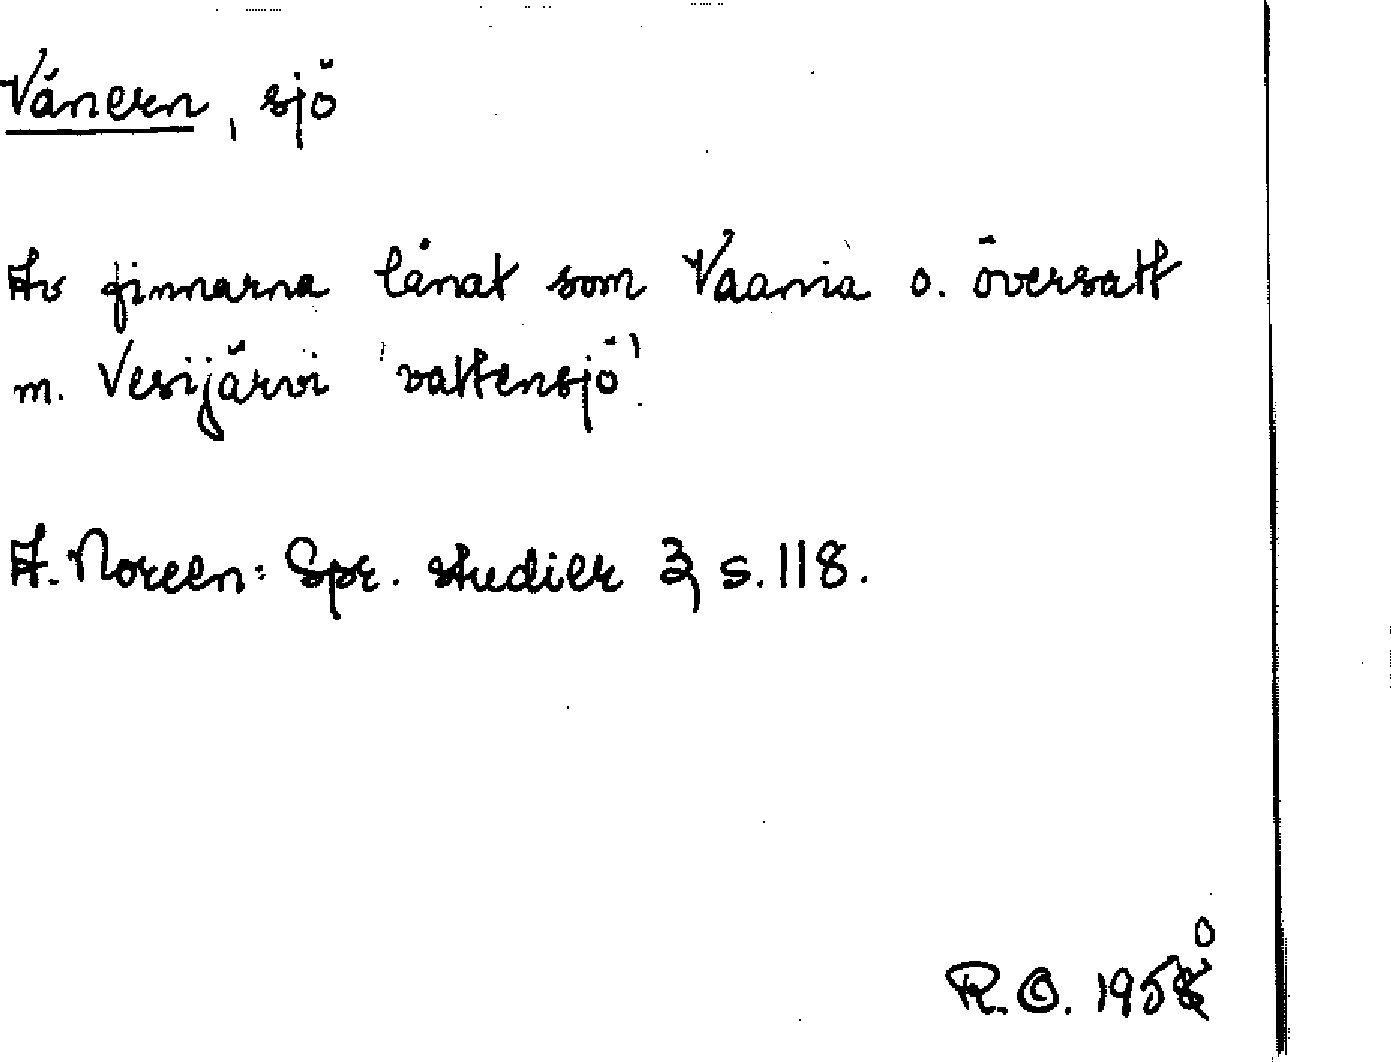 Vänern, sjö
Av finnarna lånat som Vaania o. översatt
m. Vesijärvi 'vattensjö'.
A. Noreen: Spr. studier 3, s. 118.
R.O. 1950